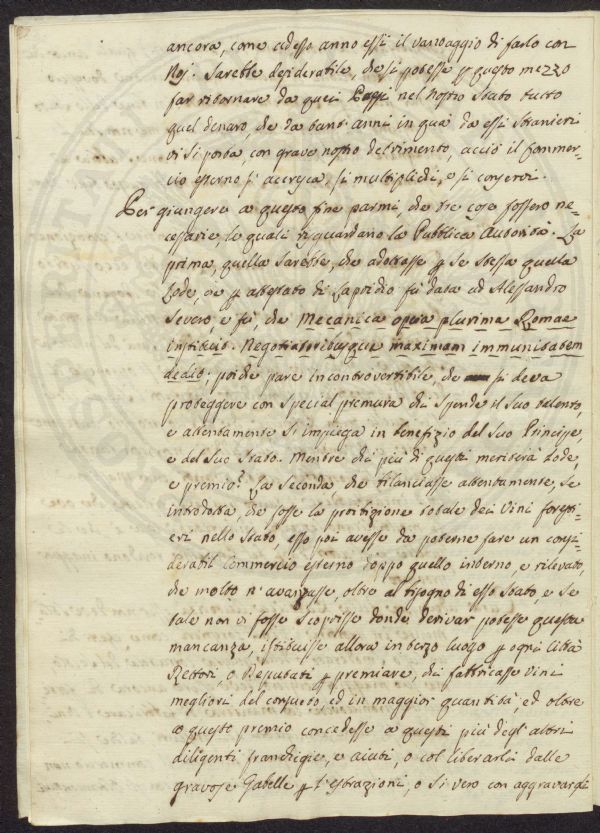 ancora, come adesso anno essi il vantaggio di farlo con
Noj. Sarebbe desiderabile, che si potesse p questo mezzo
far ritornare da quei Paesi nel nostro Stato tutto
quel denaro, che da tant' anni in quà da essi stranieri
vi si porta, con grave nostro detrimento, acciò il Commer=
cio esterno si accresca, si multiplichi, e si conservi.
Per giungere a questo fine parmi, che tre cose fossero ne=
cessarie, le quali riguardano la Pubblica Autorità. La
prima, quella sarebbe, che adottasse p se stessa quella
Lode, che p attestato di Lapridio fù data ad Alessandro
Severo, e fù, che Mecanica opera plurima Romae
instituit. Negotiatoribusque maximam immunitatem
dedit; poiche pare incontrovertibile, che si deva
proteggere con special premura chi spende il suo talento,
e attentamente si impiega in benefizio del suo Principe,
e del suo Stato. Mentre chi più di questi meriterà Lode,
e premio? La seconda, che bilanciasse attentamente, se
introdotta, che fosse la proibizione totale dei Vini foresti=
eri nello Stato, esso poi avesse da poterne fare un consi=
derabil Commercio esterno doppo quello interno, e rilevato,
che molto n'avanzasse, oltre al bisogno di esso Stato, e se
tale non vi fosse scoprisse donde derivar potesse questa
mancanza, istituisse allora in terzo luogo p ogni Città
Rettori, o Deputati p premiare, chi fabbricasse Vini
megliori del consueto, ed in maggior quantità, ed oltre
a questo premio concedesse a questi più degl' altri
diligenti franchigie, e aiuti, o col liberarli dalle
gravose Gabelle p l'estrazioni, o si vero con aggravargli